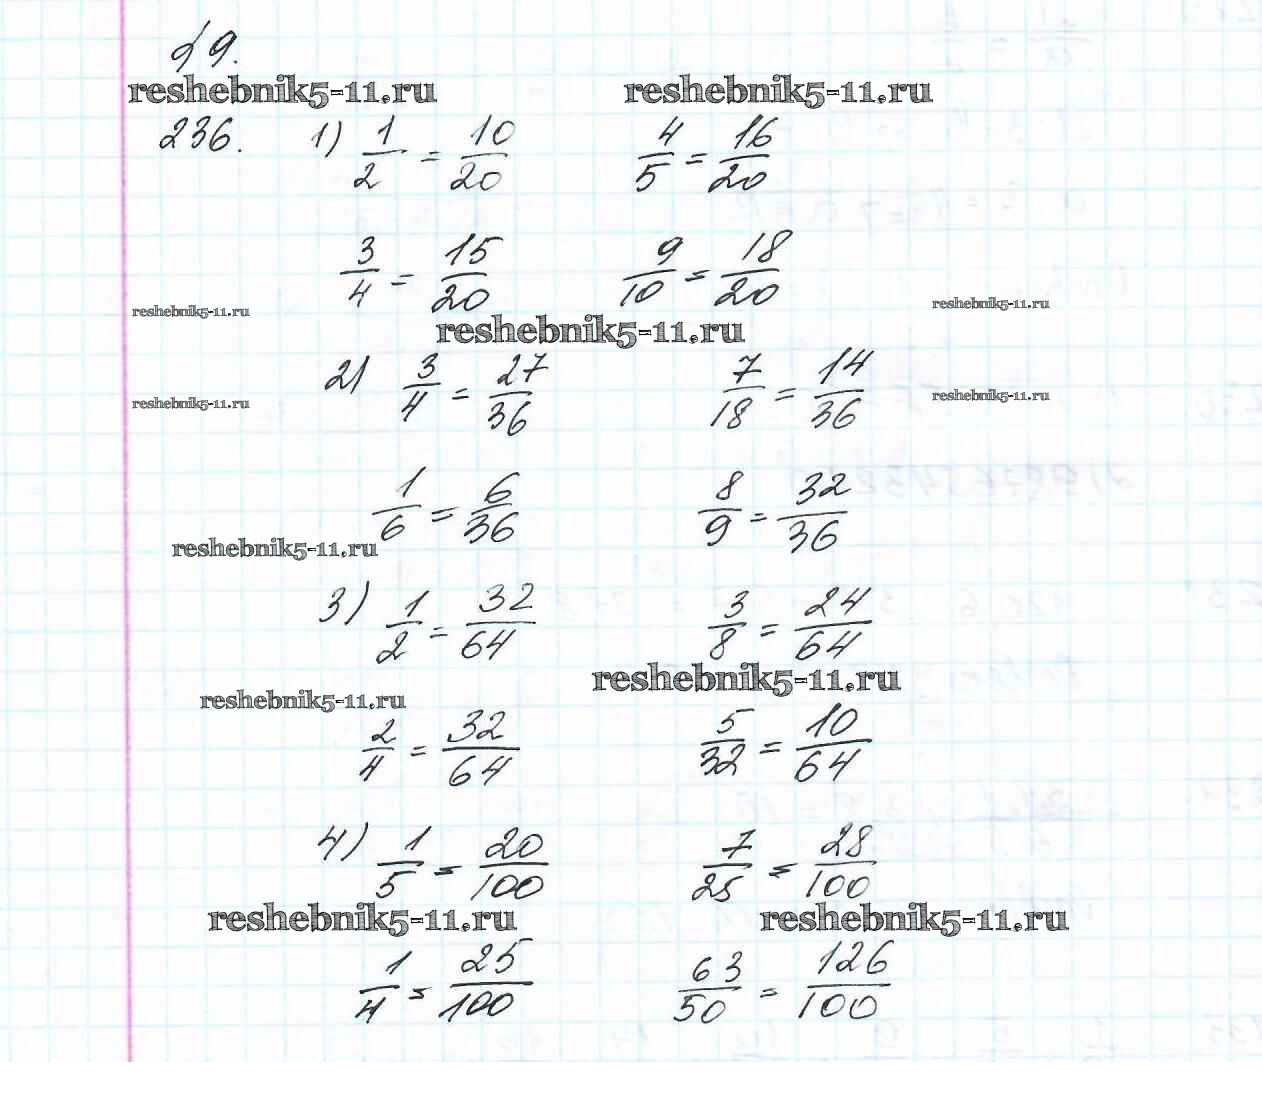 § 9.
reshebnik5-11.ru reshebnik5-11.ru
236. 1) 1/2 = 10/20 4/5 = 16/20
3/4 = 15/20 9/10 = 18/20
reshebnik5-11.ru reshebnik5-11.ru
reshebnik5-11.ru
2) 3/4 = 27/36 7/18 = 14/36
reshebnik5-11.ru reshebnik5-11.ru
1/6 = 6/36 8/9 = 32/36
reshebnik5-11.ru
3) 1/2 = 32/64 3/8 = 24/64
reshebnik5-11.ru reshebnik5-11.ru
2/4 = 32/64 5/32 = 10/64
4) 1/5 = 20/100 7/25 = 28/100
reshebnik5-11.ru reshebnik5-11.ru
1/4 = 25/100 63/50 = 126/100